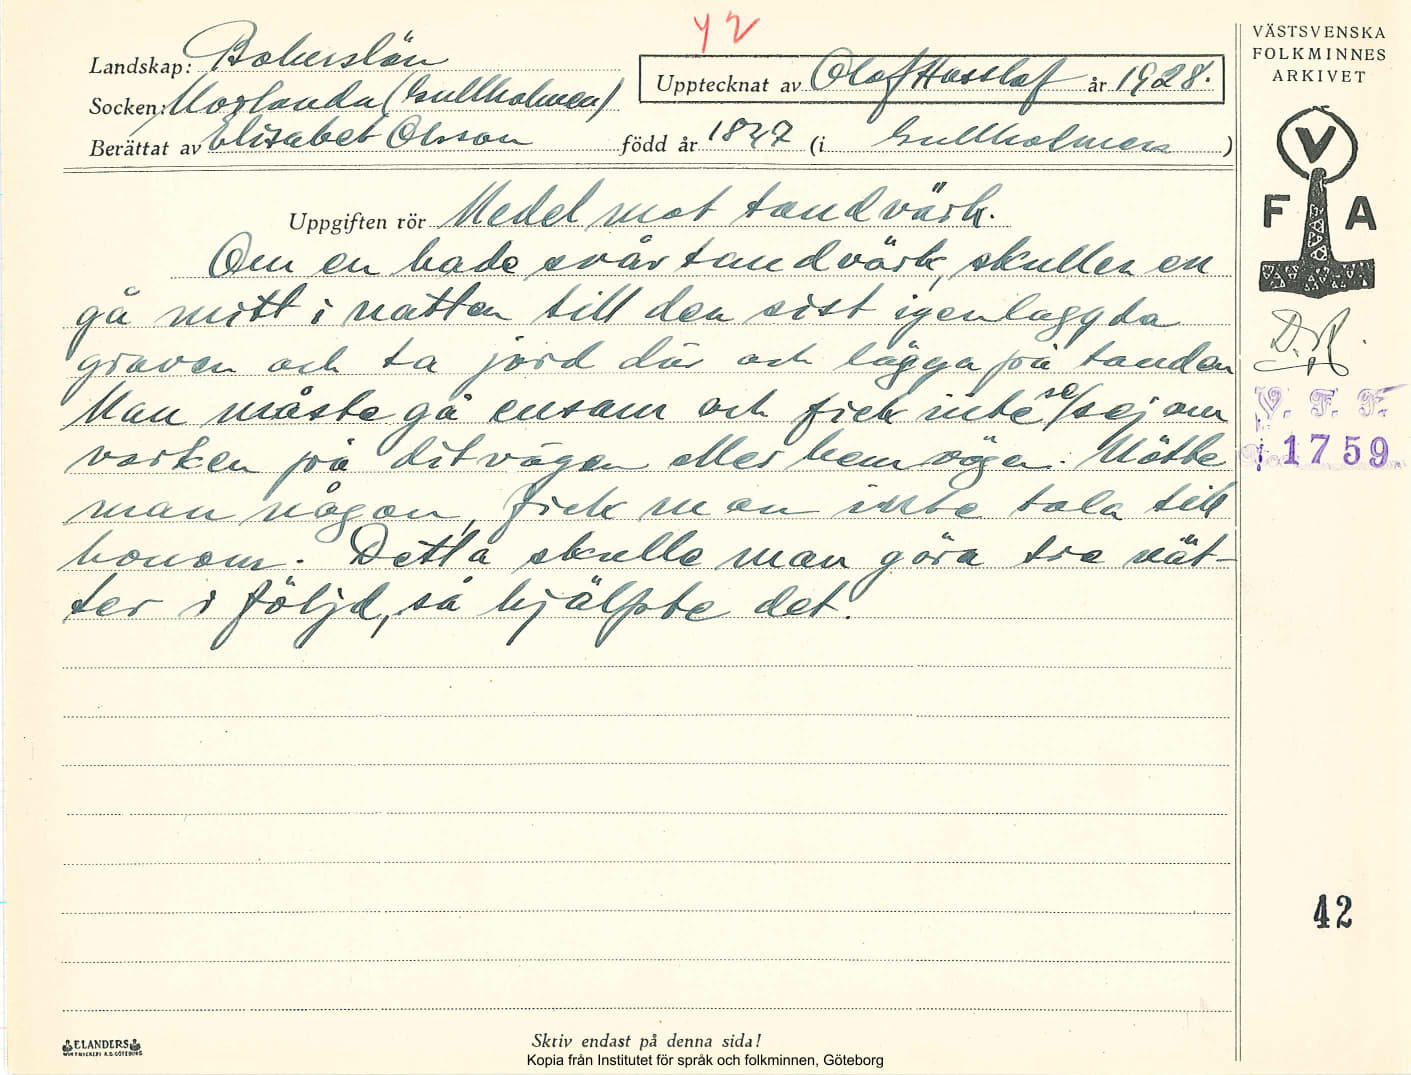 42
Landskap: Bohuslän
Upptecknat av Olof Hasslöf år 1928.
Socken: Morlanda (Gullholmen)
Berättat av Elisabet Olsson född år 1847 (i Gullholmen)
Uppgiften rör Medel mot tandvärk.
Om en hade svår tandvärk, skullen en
gå mitt i natten till den sist igenlaggda
graven och ta jord där och lägga på tanden
Man måste gå ensam och fick inte se/sej om
varken på ditvägen eller hemvägen. Mötte
man någon, fick man inte tala till
honom. Detta skulle man göra tre nät-
ter i följd, så hjälpte det.
VÄSTSVENSKA
FOLKMINNES
ARKIVET
V
F A
V. F. F.
1759
42
ELANDERS
Skriv endast på denna sida!
Kopia från Institutet för språk och folkminnen, Göteborg